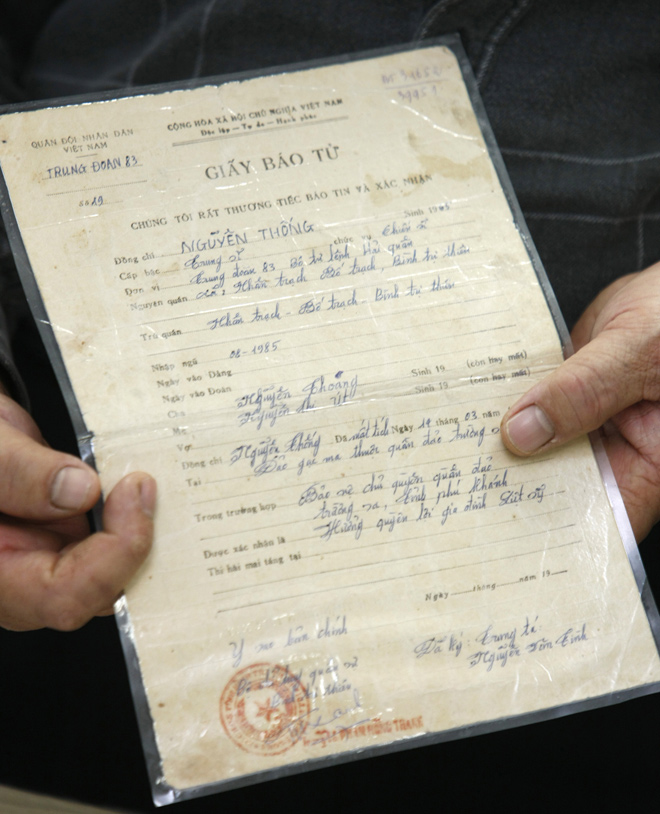 QUÂN ĐỘI NHÂN DÂN
VIỆT NAM
TRUNG ĐOÀN 83
Số 29
CỘNG HÒA XÃ HỘI CHỦ NGHĨA VIỆT NAM
Độc lập — Tự do — Hạnh phúc
GIẤY BÁO TỬ
CHÚNG TÔI RẤT THƯƠNG TIẾC BÁO TIN VÀ XÁC NHẬN
Đồng chí NGUYỄN THỐNG Sinh 19
Cấp bậc Trung sĩ chức vụ Chiến sĩ
Đơn vị Trung đoàn 83 Bộ tư lệnh Hải quân
Nguyên quán Nhân trạch - Bố trạch, Bình trị thiên
Trú quán Nhân trạch - Bố trạch - Bình trị thiên
Nhập ngũ 08-1985
Ngày vào Đảng
Ngày vào Đoàn
Cha Nguyễn Sinh 19 (còn hay mất)
Mẹ Nguyễn thị Út Sinh 19 (còn hay mất)
Vợ
Đồng chí Nguyễn Thống Đã mất tích Ngày 14 tháng 03 năm
Tại Đảo gạc ma thuộc quần đảo trường
Trong trường hợp Bảo vệ chủ quyền quần đảo
trường sa, tỉnh phú khánh
Được xác nhận là Hưởng quyền lợi gia đình Liệt sỹ
Thi hài mai táng tại
Ngày tháng năm 19
Y sao bản chính
Đã ký: Trung tá
Nguyễn